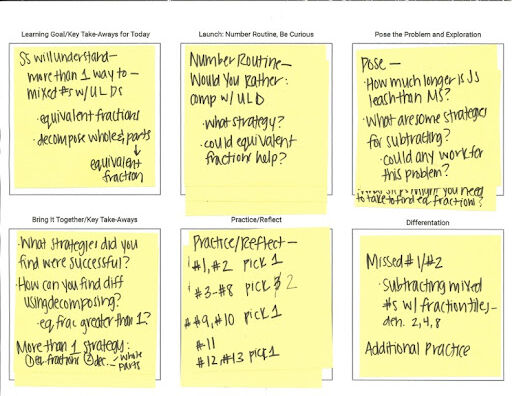 Learning Goal/Key Take-Aways for Today
Ss will understand—
more than 1 way to –
mixed #s w/ ULDs
· equivalent fractions
· decompose whole & parts
↓
equivalent
fraction
Launch: Number Routine, Be Curious
Number Routine—
Would you Rather:
comp w/ ULD
· what strategy?
· could equivalent
fractions help?
Pose the Problem and Exploration
Pose —
· How much longer is Js
leash than Ms?
· What are some strategies
for subtracting?
· could any work for
this problem?
might you need
to take to find eq. fractions?
Bring It Together/Key Take-Aways
· What strategies did you
find were successful?
· How can you find diff
using decomposing?
· eq. frac greater than 1?
More than 1 strategy:
① eq. fractions ② dec. – whole
parts
Practice/Reflect
Practice/Reflect —
#1, #2 pick 1
#3-#8 pick 3 2
#9, #10 pick 1
#11
#12, #13 pick 1
Differentation
Missed #1/#2
· Subtracting mixed
#s w/ fraction tiles –
den. 2, 4, 8
Additional Practice